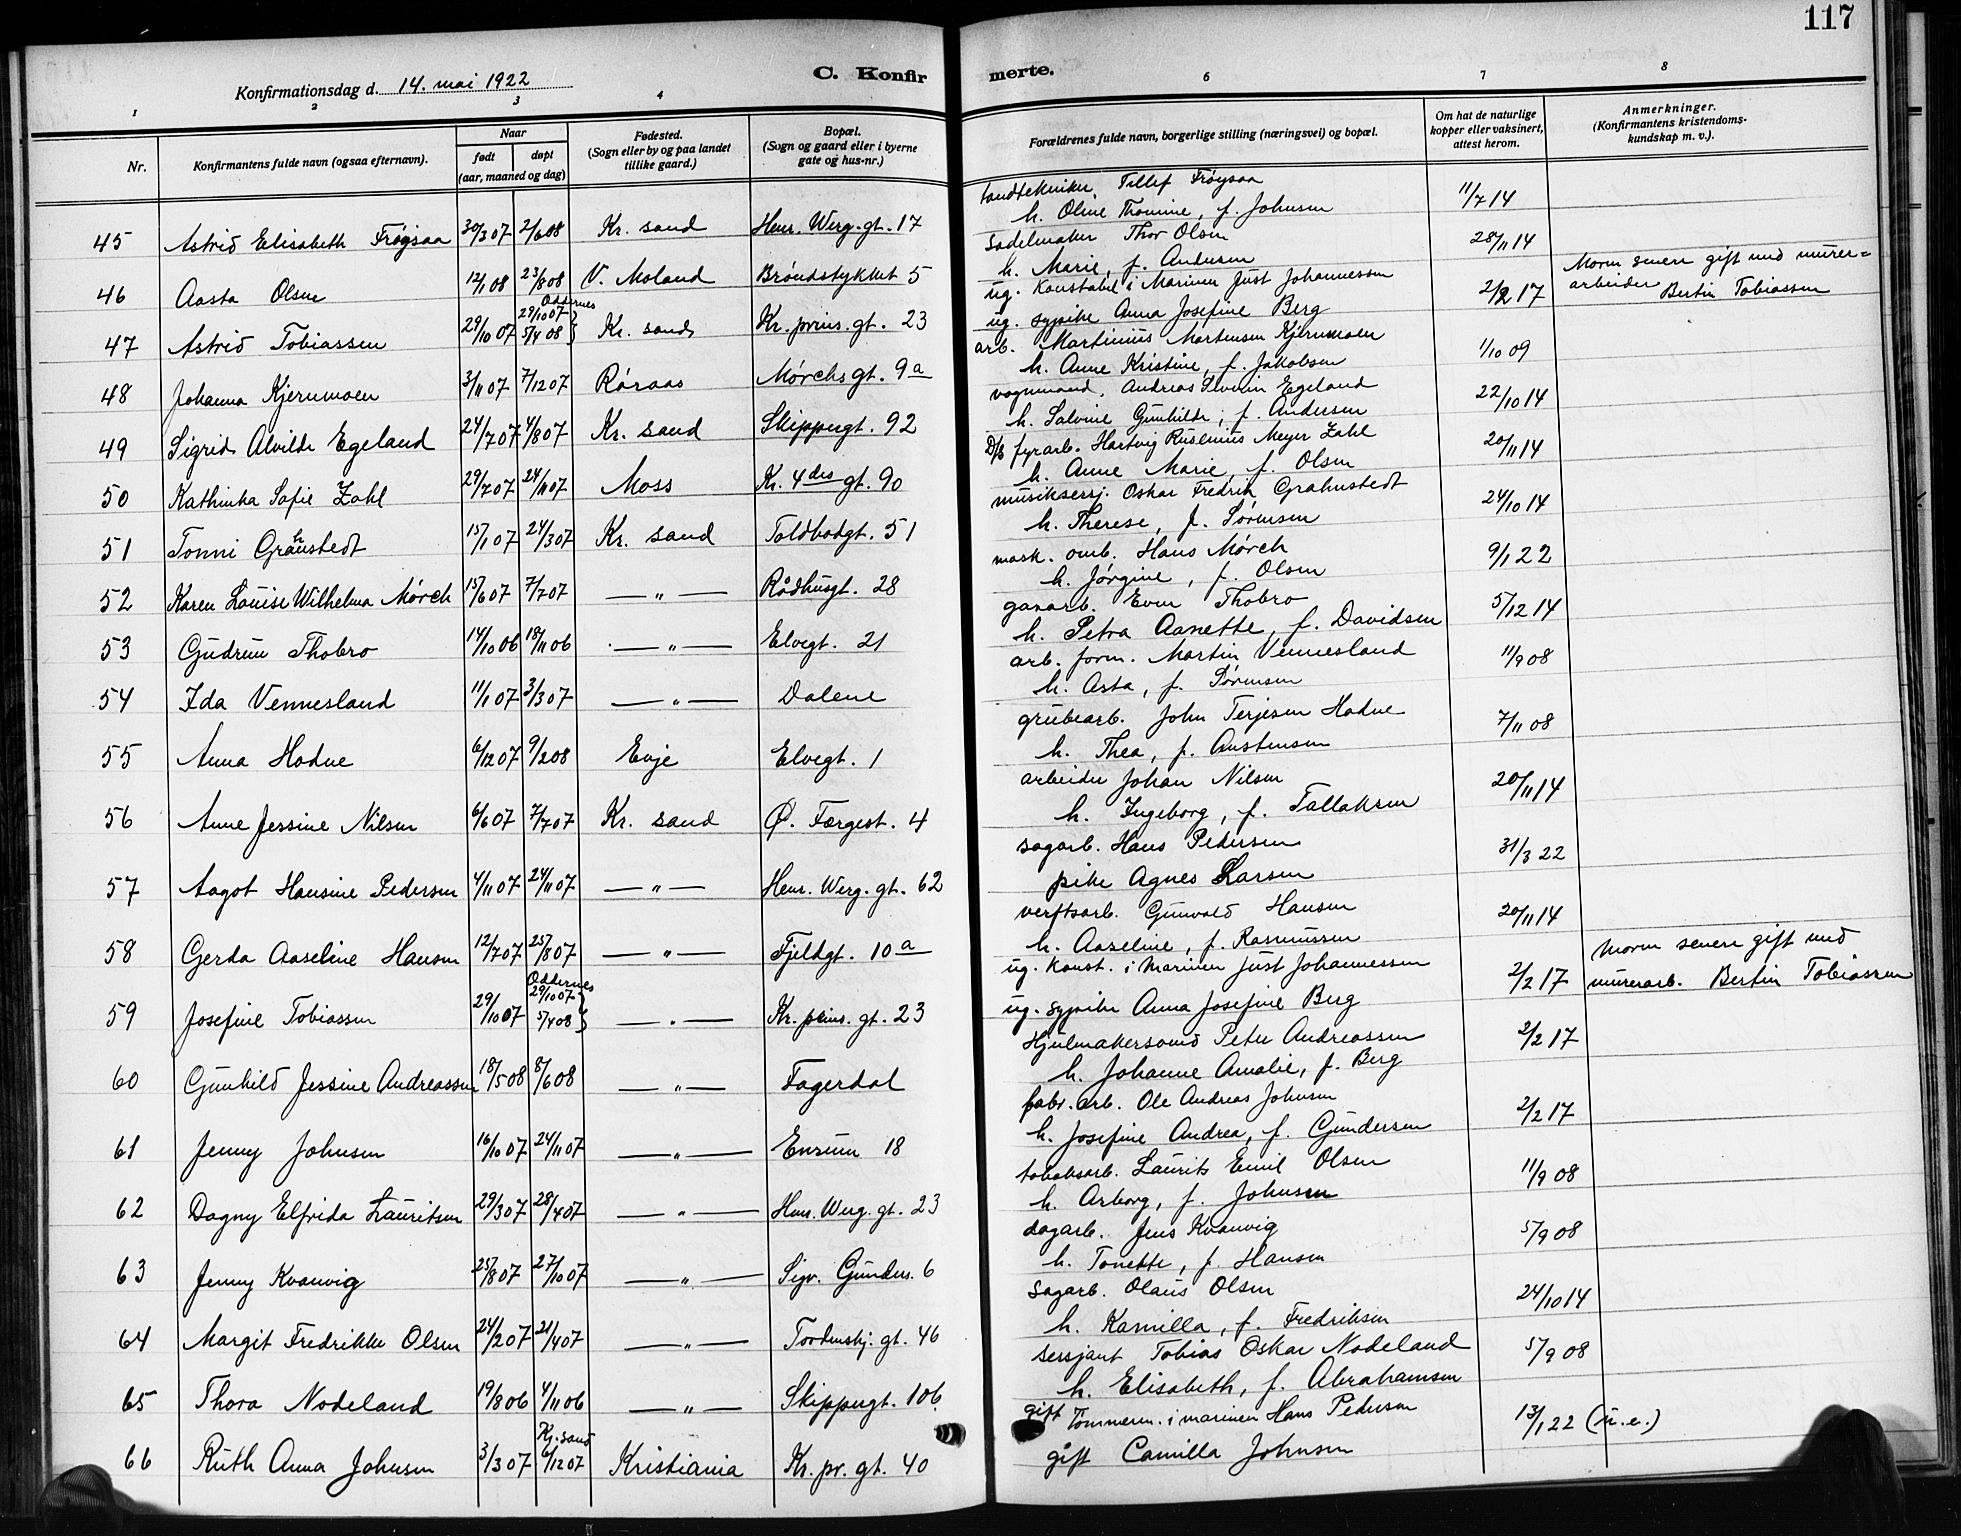 117
Konfirmationsdag d. 14. mai 1922
C. Konfirmerte.
1 2 3 4 6 7 8
Nr.
Konfirmantens fulde navn (ogsaa efternavn).
Naar
født døpt
(aar, maaned og dag)
Fødested.
(Sogn eller by og paa landet
tillike gaard.)
Bopæl.
(Sogn og gaard eller i byerne
gate og hus-nr.)
Forældrenes fulde navn, borgerlige stilling (næringsvei) og bopæl.
Om hat de naturlige
kopper eller vaksinert,
attest herom.
Anmerkninger.
(Konfirmantens kristendoms-
kundskap m. v.).
45 Astrid Elisabeth Frøysaa 30/3 07 2/6 08 Kr. sand Henr. Werg. gt. 17
tandtekniker Tellef Frøysaa 11/7 14
h. Oline Thomine, f. Johnsen
46 Aasta Olsen 12/1 08 23/8 08 V. Moland Brøndstykket 5
sadelmaker Thor Olsen 28/11 14
h. Marie, f. Andersen
47 Astrid Tobiassen 29/10 07 Oddernes 29/10 07 5/4 08 } Kr. sand Kr. prins. gt. 23
ug. Konstabel i Marinen Just Johannessen 2/2 17 Moren senere gift med murer=
ug. sypike Anna Josefine Berg arbeider Bertin Tobiassen
48 Johanna Kjernmoen 3/11 07 7/12 07 Røraas Mørchs gt. 9a
arb. Martinius Martensen Kjernmoen 1/10 09
h. Anne Kristine, f. Jakobsen
49 Sigrid Alvilde Egeland 24/7 07 4/8 07 Kr. sand Skippergt. 92
vognmand. Andreas Severin Egeland 22/10 14
h. Salvine Gunhilde, f. Andersen
50 Kathinka Sofie Zahl 29/7 07 24/11 07 Moss Kr. 4des gt. 90
D/S fyrarb. Hartvig Rusenius Meyer Zahl 20/11 14
h. Anne Marie, f. Olsen
51 Tonni Grahnstedt 15/1 07 24/3 07 Kr. sand Toldbodgt. 51
musiksersj. Oskar Fredrik Grahnstedt 24/10 14
h. Therese, f. Sørensen
52 Karen Louise Wilhelma Mørch 15/6 07 7/7 07 — " — Rådhusgt. 28
mask. arb. Hans Mørch 9/1 22
h. Jørgine, f. Olsen
53 Gudrun Thobro 14/10 06 18/11 06 — " — Elvegt. 21
gasarb. Even Thobro 5/12 14
h. Petra Aanette, f. Davidsen
54 Ida Vennesland 11/1 07 3/3 07 — " — Dalene
arb. form. Martin Vennesland 11/9 08
h. Asta, f. Sørensen
55 Anna Hodne 6/12 07 9/2 08 Evje Elvegt. 1
grubearb. John Terjesen Hodne 7/11 08
h. Thea, f. Austensen
56 Anne Jessine Nilsen 6/6 07 7/7 07 Kr. sand Ø. Færgest. 4
arbeider Johan Nilsen 20/11 14
h. Ingeborg, f. Tallaksen
57 Aagot Hansine Pedersen 4/11 07 24/11 07 — " — Henr. Werg. gt. 62
sagarb. Hans Pedersen 31/3 22
pike Agnes Larsen
58 Gerda Aaseline Hansen 12/7 07 25/8 07 — " — Fjeldgt. 10a
verftsarb. Gunvald Hansen 20/11 14
h. Aaseline, f. Rasmussen
59 Josefine Tobiassen 29/10 07 Oddernes 29/10 07 5/4 08 } — " — Kr. prins. gt. 23
ug. Konst. i Marinen Just Johannessen 2/2 17 Moren senere gift med
ug. sypike Anna Josefine Berg murerarb. Bertin Tobiassen
60 Gunhild Jessine Andreassen 18/5 08 8/6 08 — " — Fagerdal
Hjulmakersvend Peter Andreassen 2/2 17
h. Johanne Amalie, f. Berg
61 Jenny Johnsen 16/10 07 24/11 07 — " — Enrum 18
fabr. arb. Ole Andreas Johnsen 2/2 17
h. Josefine Andrea, f. Gundersen
62 Dagny Elfrida Lauritsen 29/3 07 28/4 07 — " — Henr. Werg. gt. 23
tobaksarb. Laurits Emil Olsen 11/9 08
h. Arborg, f. Johnsen
63 Jenny Kvanvig 25/8 07 27/10 07 — " — Sigv. Gunders. 6
dagarb. Jens Kvanvig 5/9 08
h. Tonette, f. Hansen
64 Margit Fredrikke Olsen 24/2 07 21/4 07 — " — Tordenskj. gt. 46
Sagarb. Olaus Olsen 24/10 14
h. Kamilla, f. Fredriksen
65 Thora Nodeland 19/8 06 4/11 06 — " — Skippergt. 106
sersjant Tobias Oskar Nodeland 5/9 08
h. Elisabeth, f. Abrahamsen
66 Ruth Anna Johnsen 3/3 07 Kr. sand 6/12 07 Kristiania Kr. pr. gt. 40
gift Tømmerm. i marinen Hans Pedersen 13/1 22 (u. e.)
gift Camilla Johnsen